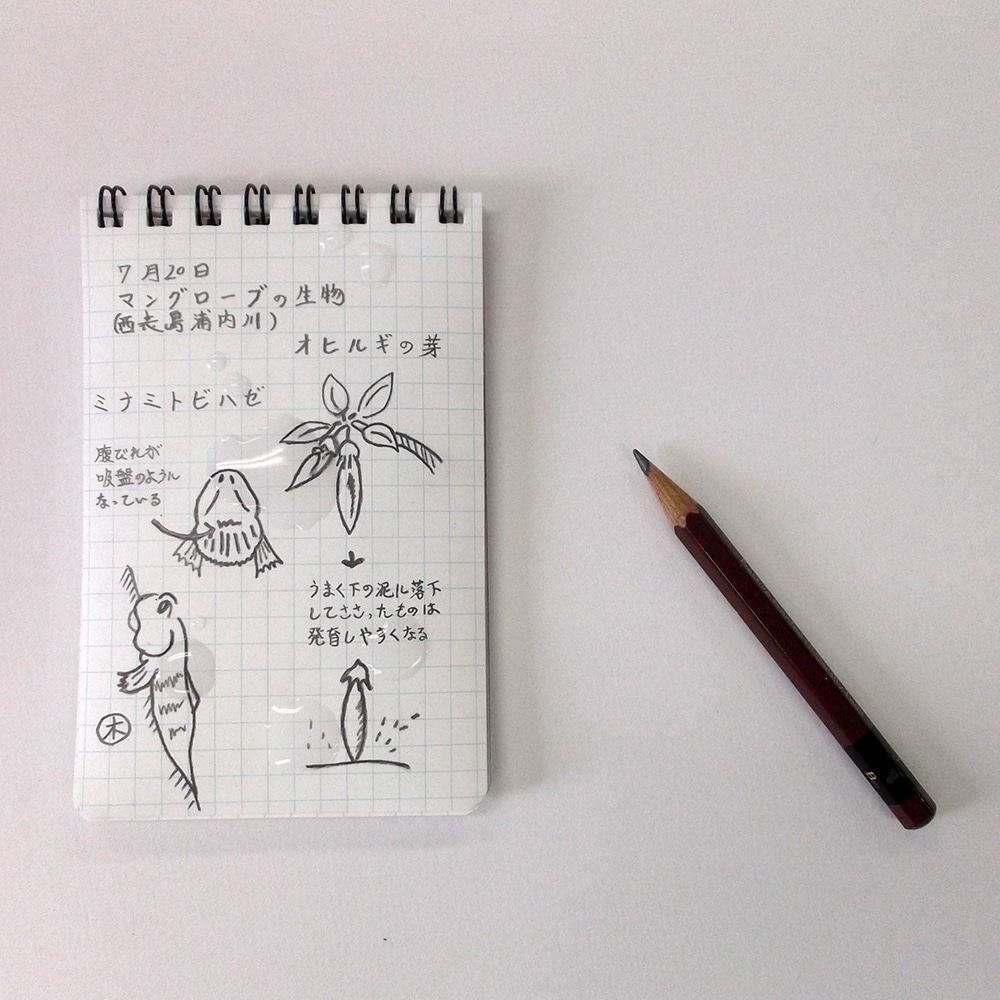 7月20日
マングローブの生物
(西表島浦内川)
オヒルギの芽
ミナミトビハゼ
腹びれが
吸盤のように
なっている
うまく下の泥に落下
してささったものは
発育しやすくなる
木
B